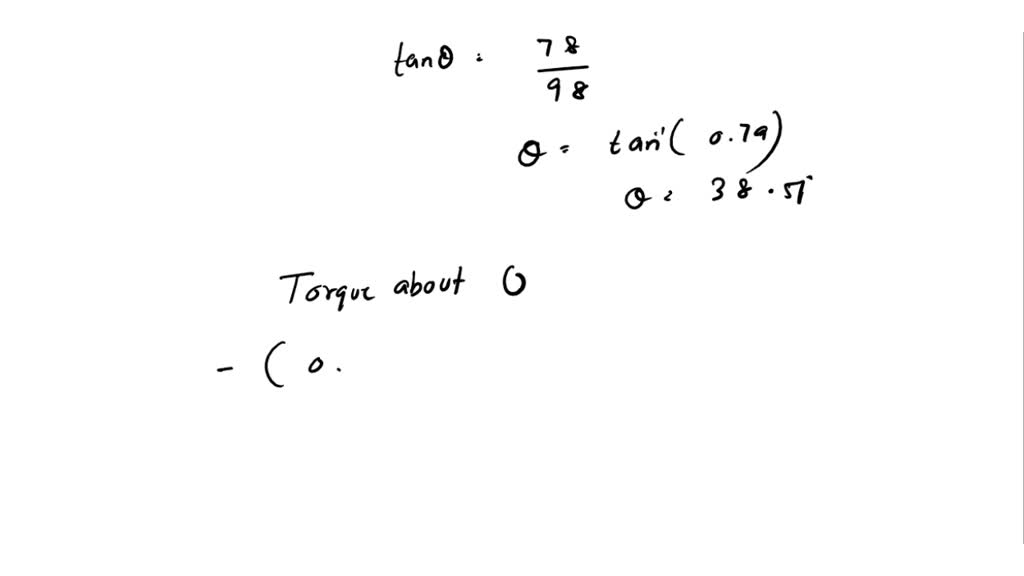 tanθ = 78/98
θ = tan⁻¹( 0.79)
θ = 38.51°
Torque about O
- ( 0.